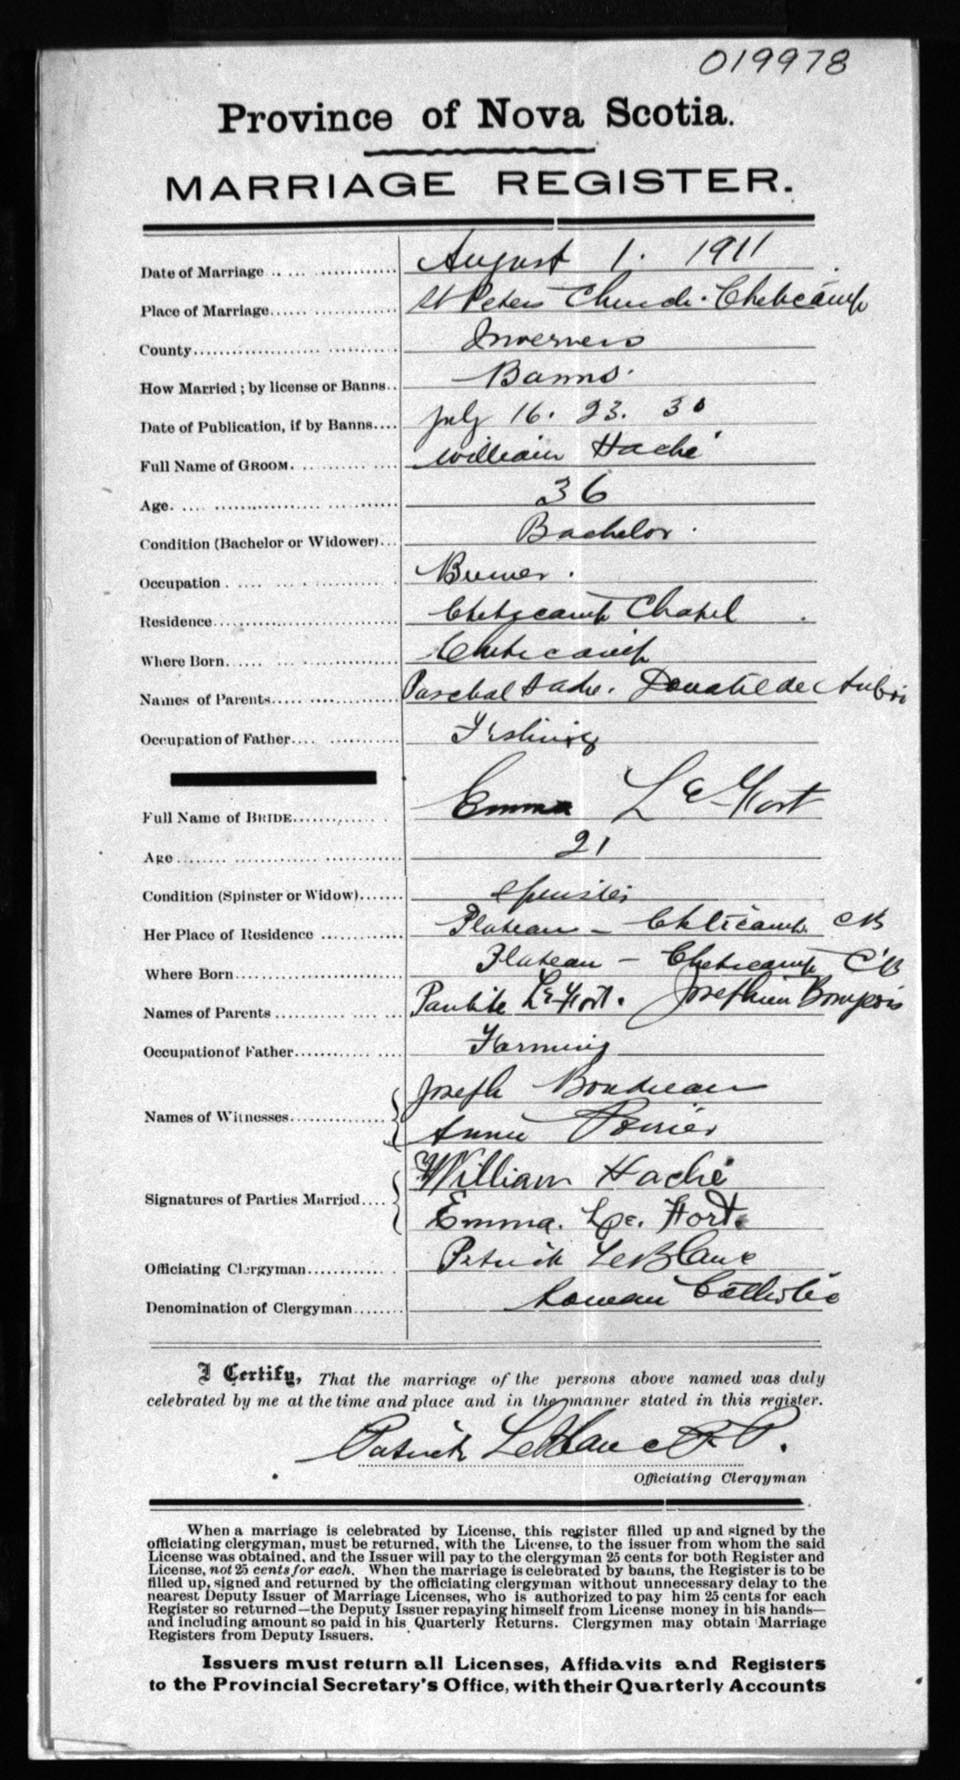 019978
Province of Nova Scotia.
MARRIAGE REGISTER.
Date of Marriage August 1. 1911
Place of Marriage St Peters Church. Cheticamp
County Inverness
How Married; by license or Banns Banns.
Date of Publication, if by Banns July 16. 23. 30
Full Name of GROOM. William Haché
Age. 36
Condition (Bachelor or Widower) Bachelor.
Occupation
Residence Cheticamp Chapel
Where Born Cheticamp
Names of Parents Paschal Hache. Donatilde Aubri
Occupation of Father Fishing
Full Name of BRIDE Emma LeFort
Age 21
Condition (Spinster or Widow) Spinster
Her Place of Residence Plateau – Cheticamp CB
Where Born Plateau – Cheticamp CB
Names of Parents LeFort. Josephin Bourgeois
Occupation of Father Farming
Names of Witnesses Joseph Boudreau
Annie Poirier
Signatures of Parties Married William Haché
Emma. Le. Fort.
Officiating Clergyman Patrick LeBlanc
Denomination of Clergyman Roman Catholic
I Certify, That the marriage of the persons above named was duly
celebrated by me at the time and place and in the manner stated in this register.
Patrick LeBlanc P.P.
Officiating Clergyman
When a marriage is celebrated by License, this register filled up and signed by the
officiating clergyman, must be returned, with the License, to the issuer from whom the said
License was obtained, and the Issuer will pay to the clergyman 25 cents for both Register and
License, not 25 cents for each. When the marriage is celebrated by banns, the Register is to be
filled up, signed and returned by the officiating clergyman without unnecessary delay to the
nearest Deputy Issuer of Marriage Licenses, who is authorized to pay him 25 cents for each
Register so returned—the Deputy Issuer repaying himself from License money in his hands—
and including amount so paid in his Quarterly Returns. Clergymen may obtain Marriage
Registers from Deputy Issuers.
Issuers must return all Licenses, Affidavits and Registers
to the Provincial Secretary's Office, with their Quarterly Accounts